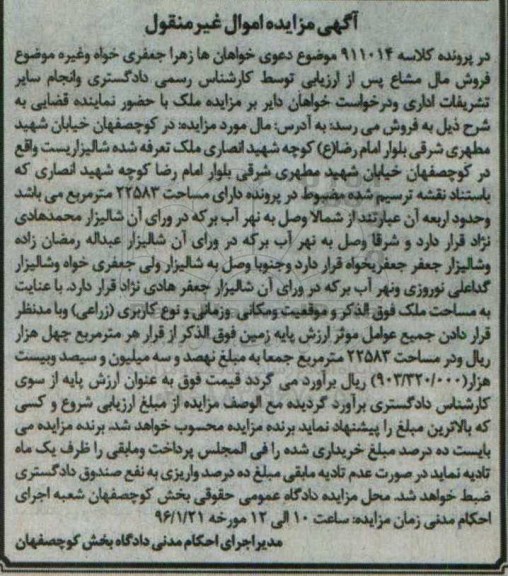 آگهی مزایده اموال غیر منقول
در پرونده کلاسه ۹۱۱۰۱۴ موضوع دعوی خواهان ها زهرا جعفری خواه وغیره موضوع
فروش مال مشاع پس از ارزیابی توسط کارشناس رسمی دادگستری وانجام سایر
تشریفات اداری ودرخواست خواهان دایر بر مزایده ملک با حضور نماینده قضایی به
شرح ذیل به فروش می رسد: به آدرس: مال مورد مزایده: در کوچصفهان خیابان شهید
مطهری شرقی بلوار امام رضا(ع) کوچه شهید انصاری ملک تعرفه شده شالیزاریست واقع
در کوچصفهان خیابان شهید مطهری شرقی بلوار امام رضا کوچه شهید انصاری که
باستناد نقشه ترسیم شده مضبوط در پرونده دارای مساحت ۲۲۵۸۳ مترمربع می باشد
وحدود اربعه آن عبارتند از شمالا وصل به نهر آب برکه در ورای آن شالیزار محمدهادی
نژاد قرار دارد و شرقا وصل به نهر آب برکه در ورای آن شالیزار عبداله رمضان زاده
وشالیزار جعفر جعفریخواه قرار دارد وجنوبا وصل به شالیزار ولی جعفری خواه وشالیزار
گداعلی نوروزی ونهر آب برکه در ورای آن شالیزار جعفر هادی نژاد قرار دارد. با عنایت
به مساحت ملک فوق الذکر و موقعیت ومکانی وزمانی و نوع کاربری (زراعی) وبا مدنظر
قرار دادن جمیع عوامل موثر ارزش پایه زمین فوق الذکر از قرار هر مترمربع چهل هزار
ریال ودر مساحت ۲۲۵۸۳ مترمربع جمعا به مبلغ نهصد و سه میلیون و سیصد وبیست
هزار(۹۰۳/۳۲۰/۰۰۰) ریال برآورد می گردد قیمت فوق به عنوان ارزش پایه از سوی
کارشناس دادگستری برآورد گردیده مع الوصف مزایده از مبلغ ارزیابی شروع و کسی
که بالاترین مبلغ را پیشنهاد نماید برنده مزایده محسوب خواهد شد. برنده مزایده می
بایست ده درصد مبلغ خریداری شده را فی المجلس پرداخت ومابقی را ظرف یک ماه
تادیه نماید در صورت عدم تادیه مابقی مبلغ ده درصد واریزی به نفع صندوق دادگستری
ضبط خواهد شد. محل مزایده دادگاه عمومی حقوقی بخش کوچصفهان شعبه اجرای
احکام مدنی زمان مزایده: ساعت ۱۰ الی ۱۲ مورخه ۹۶/۱/۲۱
مدیر اجرای احکام مدنی دادگاه بخش کوچصفهان